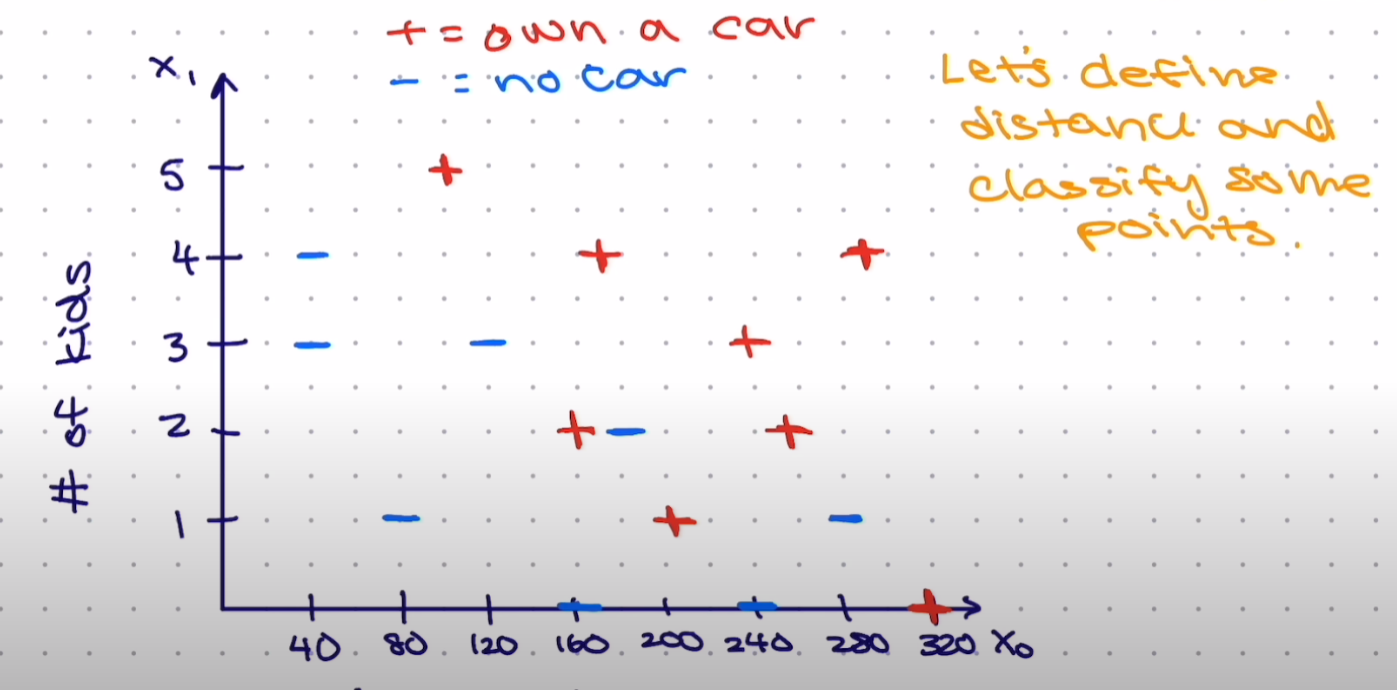 + = own a car
- = no car
Let's define
distance and
classify some
points.
x₁
5
4
3
2
1
# of kids
40 80 120 160 200 240 280 320 x₀